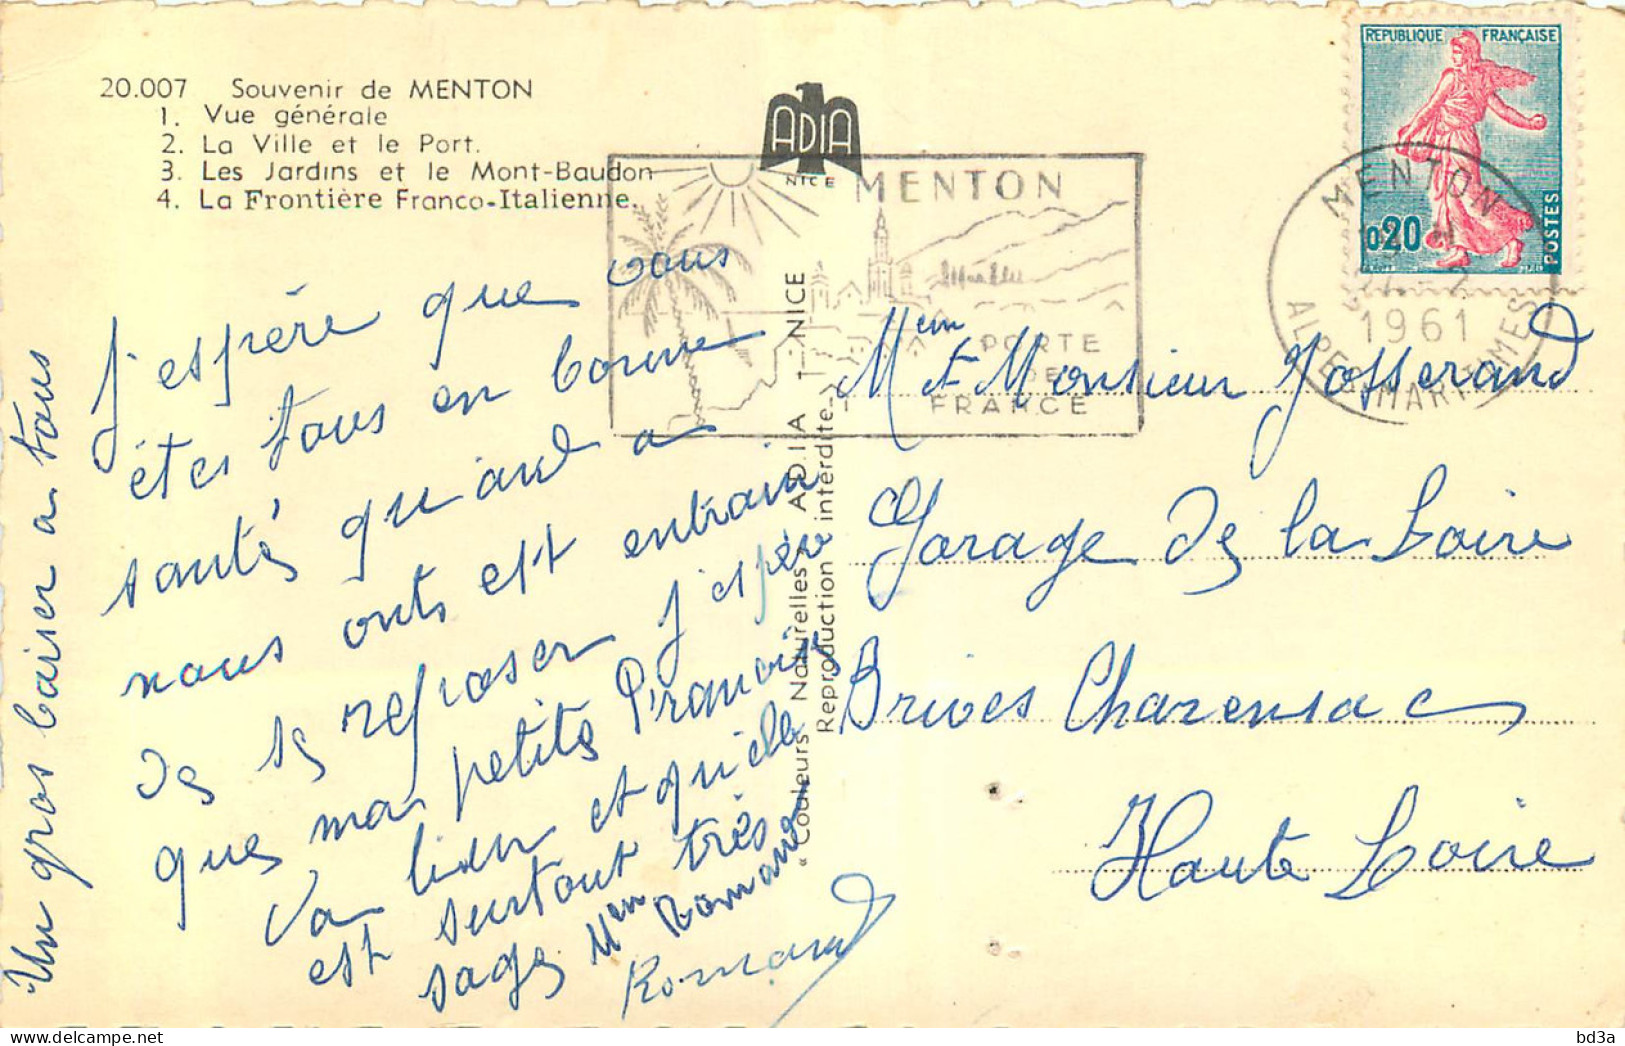 20.007 Souvenir de MENTON
1. Vue générale
2. La Ville et le Port.
3. Les Jardins et le Mont-Baudon
4. La Frontière Franco-Italienne.
ADIA
NICE
MENTON
PORTE
DE
FRANCE
REPUBLIQUE FRANÇAISE
0,20
POSTES
MENTON
1961
ALPES MARITIMES
J'espère que vous
êtes tous en bonne
santés quand a
nous onts est entrain
des se reposer j'espère
que ma petite Francoise
va bien et qu'elle
est surtout très
sage Mem Romand
Romand
Un gros baiser a tous
"Couleurs Naturelles" A.D.I.A. - NICE
Reproduction interdite.
Mem et Monsieur Josserand
Garage de la Loire
Brives Charensac
Haute Loire
bd3a